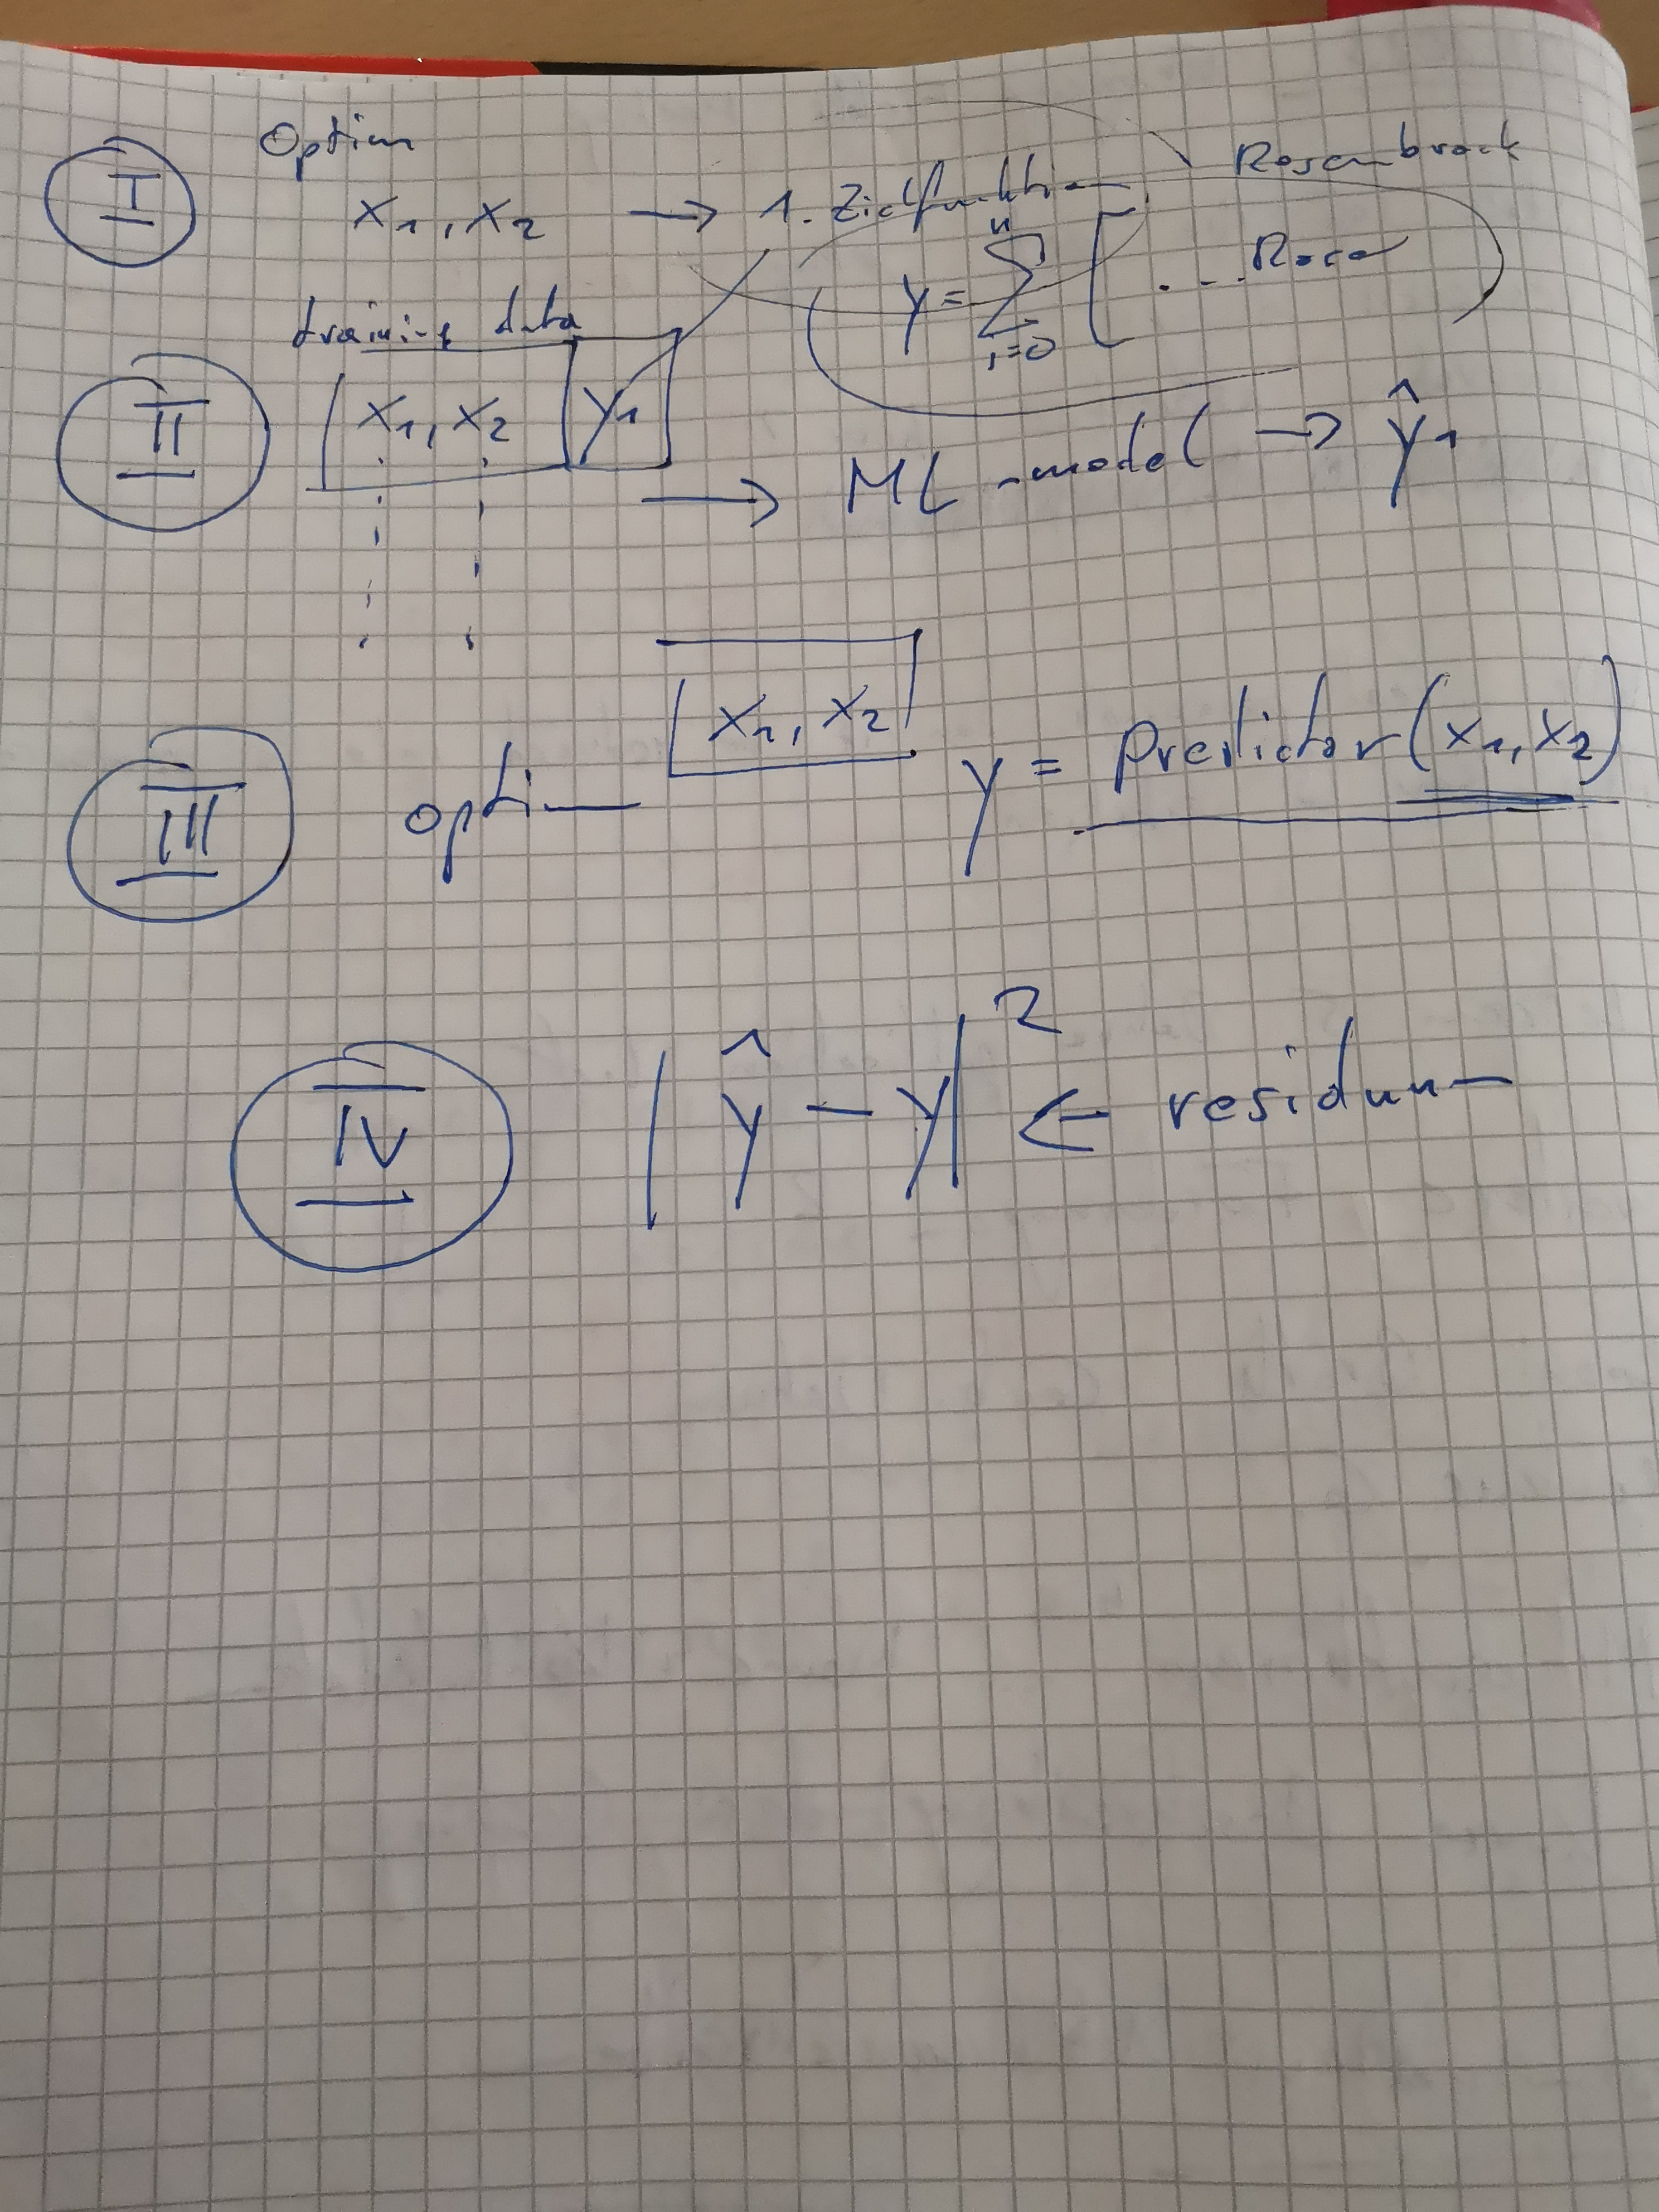 I Optim
x₁, x₂ → 1. Zielfunktion Rosenbrock
y = Σ i=0 n [ ... Rose
training data
II x₁, x₂ y₁
→ ML-model → ŷ₁
III optim x₁, x₂ y = Predictor(x₁, x₂)
IV | ŷ - y |² ← residuum